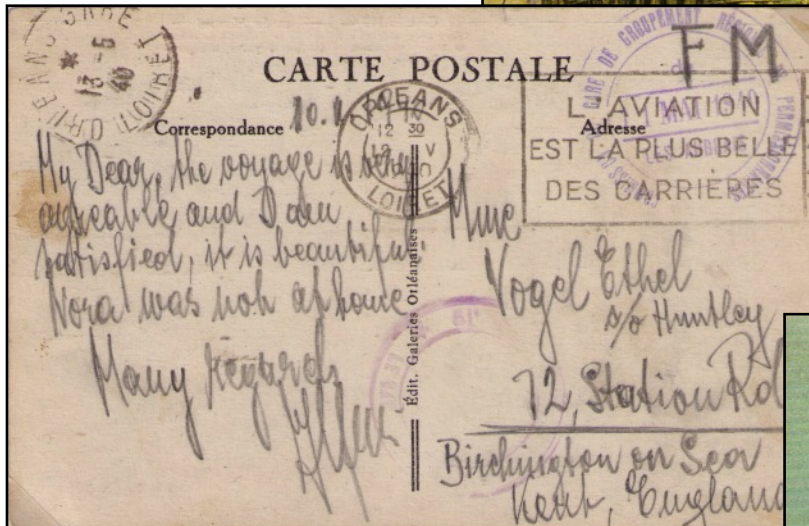 ORLEANS GARE
13-5
40
LOIRET
CARTE POSTALE
F M
GARE DE GROUPEMENT
ORLEANS
12 30
LOIRET
L'AVIATION
EST LA PLUS BELLE
DES CARRIÈRES
Correspondance
My Dear, the voyage is very
agreeable and I am
satisfied, it is beautiful.
Nora was not at home
Many regards
Édit. Galeries Orléanaises
Adresse
Mme
Vogel Ethel
s/o Huntley
72, Station Rd
Birchington on Sea
Kent, England